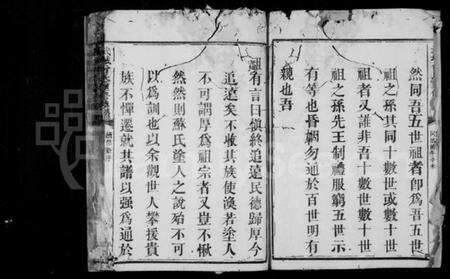 然同吾五世祖者卽爲吾五世
祖之孫其同十數世或數十世
祖者又誰非吾十數世數十世
祖之孫先王制禮服窮五世示
有等也昏姻勿通於百世明有
親也吾
祖有言曰愼終追遠民德歸厚今
追遠矣不收其族使渙若塗人
不可謂厚爲祖宗者又豈不愀
然然則蘇氏塗人之說殆不可
以爲訓也以余觀世人攀援貴
族不憚遷就其譜以强爲通於